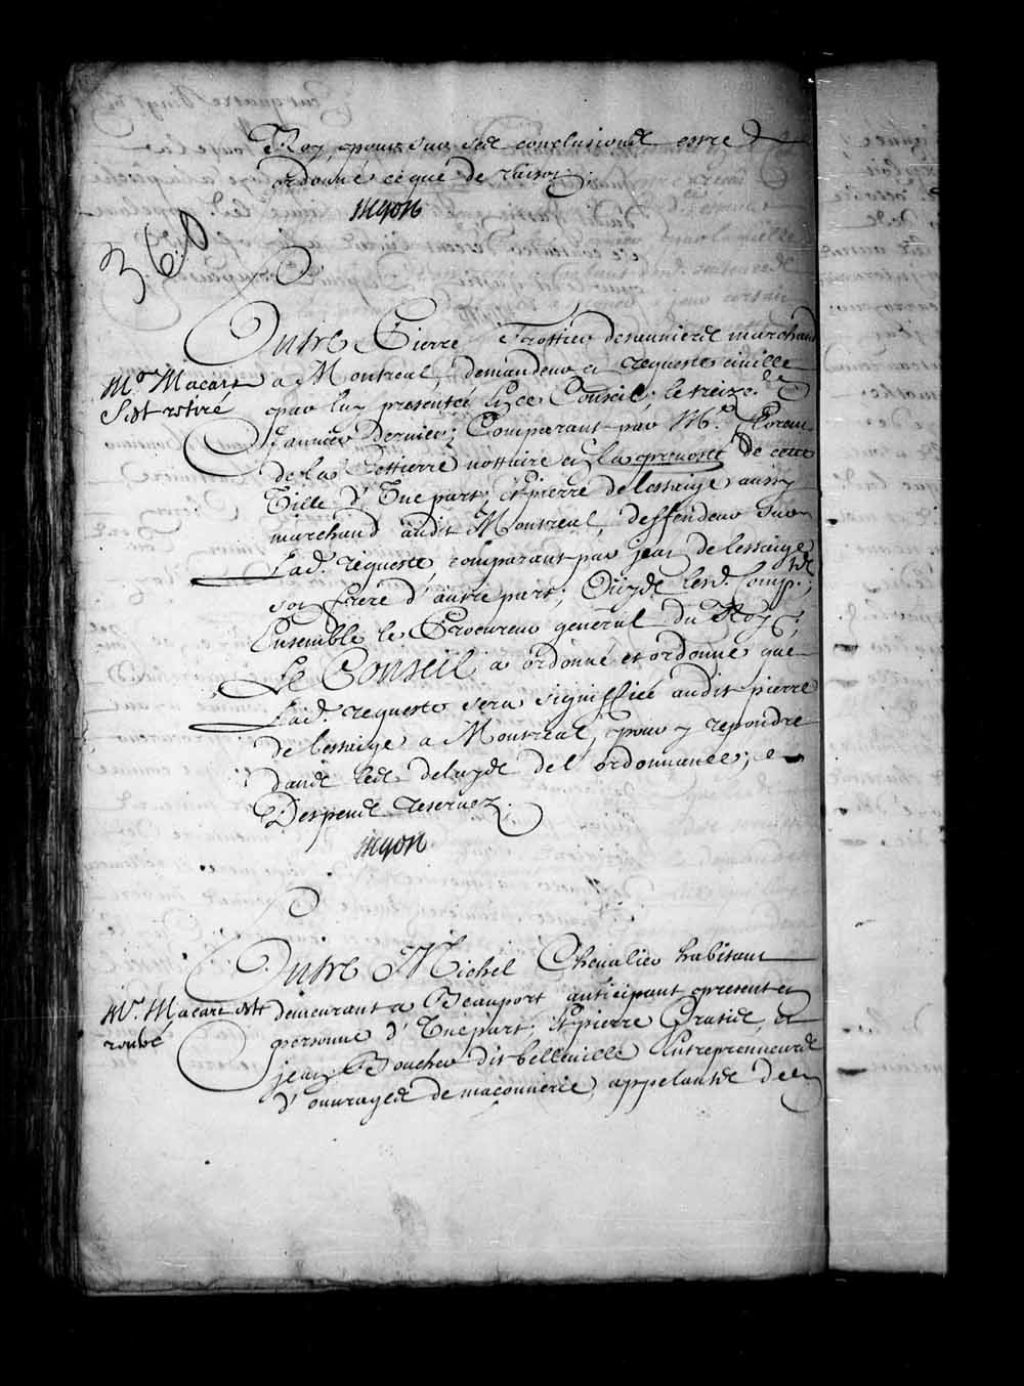 Roy, pour sur ses conclusions estre
ordonné ce que de raison;
Begon
Entre Pierre Trottier desauniers marchand
Mr. Macart
s'est retiré
a Montreal, demandeur en requeste civille
par luy presentée en ce Conseil, le treize de
Janvier Dernier; Comparant par Me. Floreau
de la Cettierre nottaire en la prevosté de cette
Ville d'Une part; Et pierre de Lestaige aussy
marchand audit Montreal, deffendeur sur
Lad. requeste, comparant par jean de Lestaige
son frere d'autre part; Ouy les d. Comp.ts;
Ensemble le Procureur general du Roy;
Le Conseil a ordonné et ordonne que
Lad. requeste sera signiffiée audit pierre
de Lestaige a Montreal, pour y repondre
dans les delays de l'ordonnance;
Despens reservez.
Begon
Entre Michel Chevalier habitant
Mr. Macart est
rentré
demeurant a Beauport anticipant present en
personne d'Une part; Et pierre Gratis, et
jean Boucher dit belleville Entrepreneurs
d'ouvrages de maçonnerie, appelants de